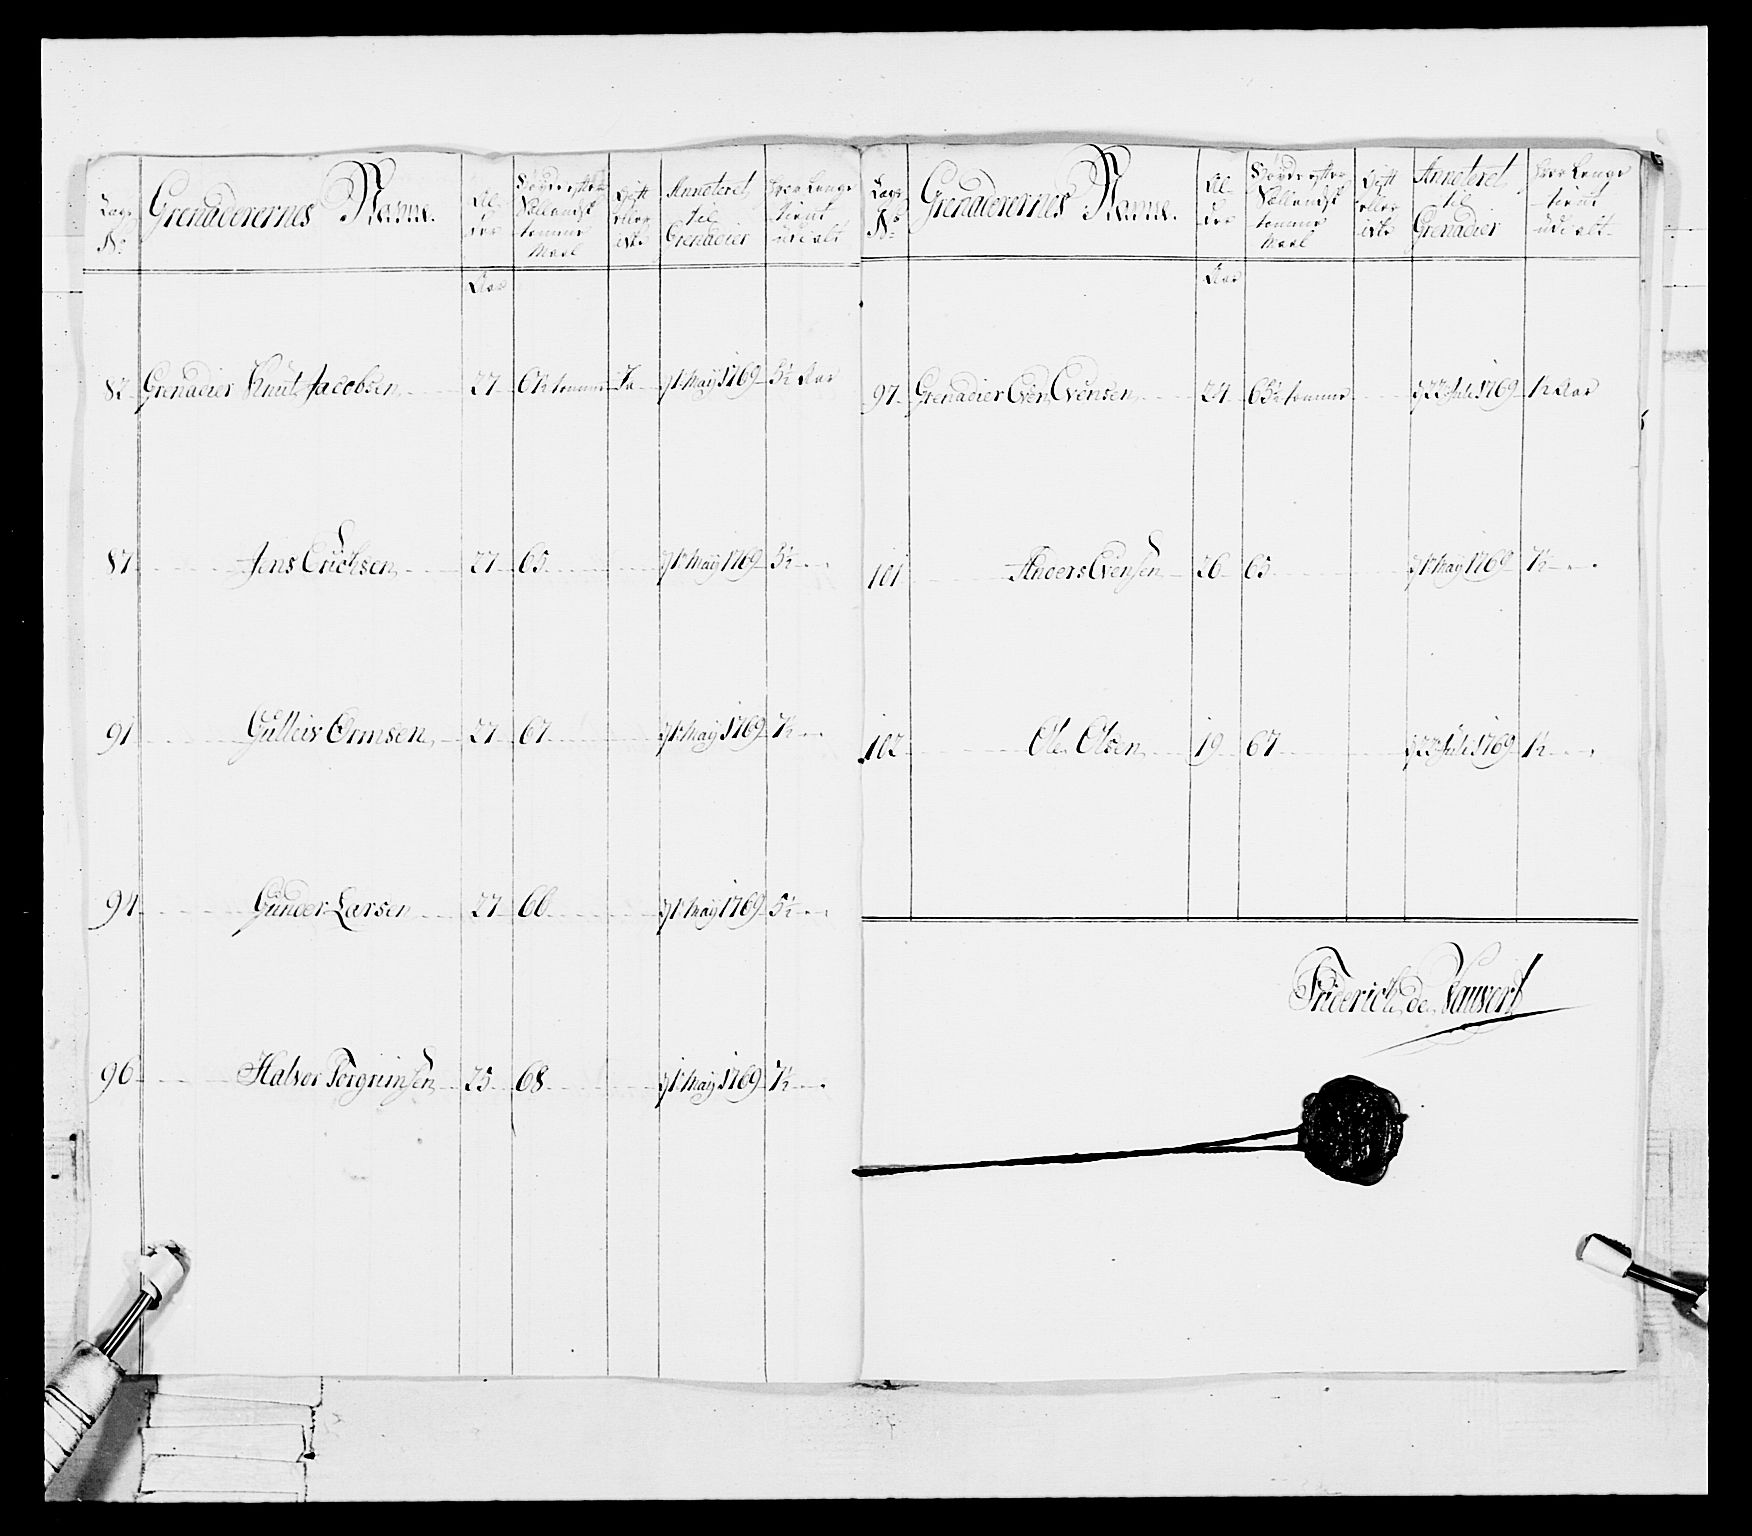 Lægs No. Grenaderernes Nafne. Al- der Høyde efter Sællandsk tomme Maal Gift eller eÿ Anneteret til Grenadier Hvor Længe tient udi alt
Aar
82 Grenadier Knut Jacobsen 27 tommer Ja d 1 Maÿ 1769 5½ Aar
87 Jens Erichsen 27 65 d 1 Maÿ 1769 5½
91 Gulleir Ormsen 27 67 d 1 Maÿ 1769 7½
94 Gunder Larsen 27 66 d 1 Maÿ 1769 5½
96 Halvor Torgrimsen 25 68 d 1 Maÿ 1769 7½
Lægs No. Grenaderernes Nafne. Al- der Høyde efter Sællandsk tomme Maal Gift eller Anneteret til Grenadier Hvor Længe tient udi alt
Aar
97 Grenadier Even Evensen 24 65½ tommer d 22 Juli 1769 1½ Aar
101 Anders Evensen 26 65 d 1 Maÿ 1769 7½
102 Ole Olsen 19 67 d 22 Juli 1769 1½
Friderich de